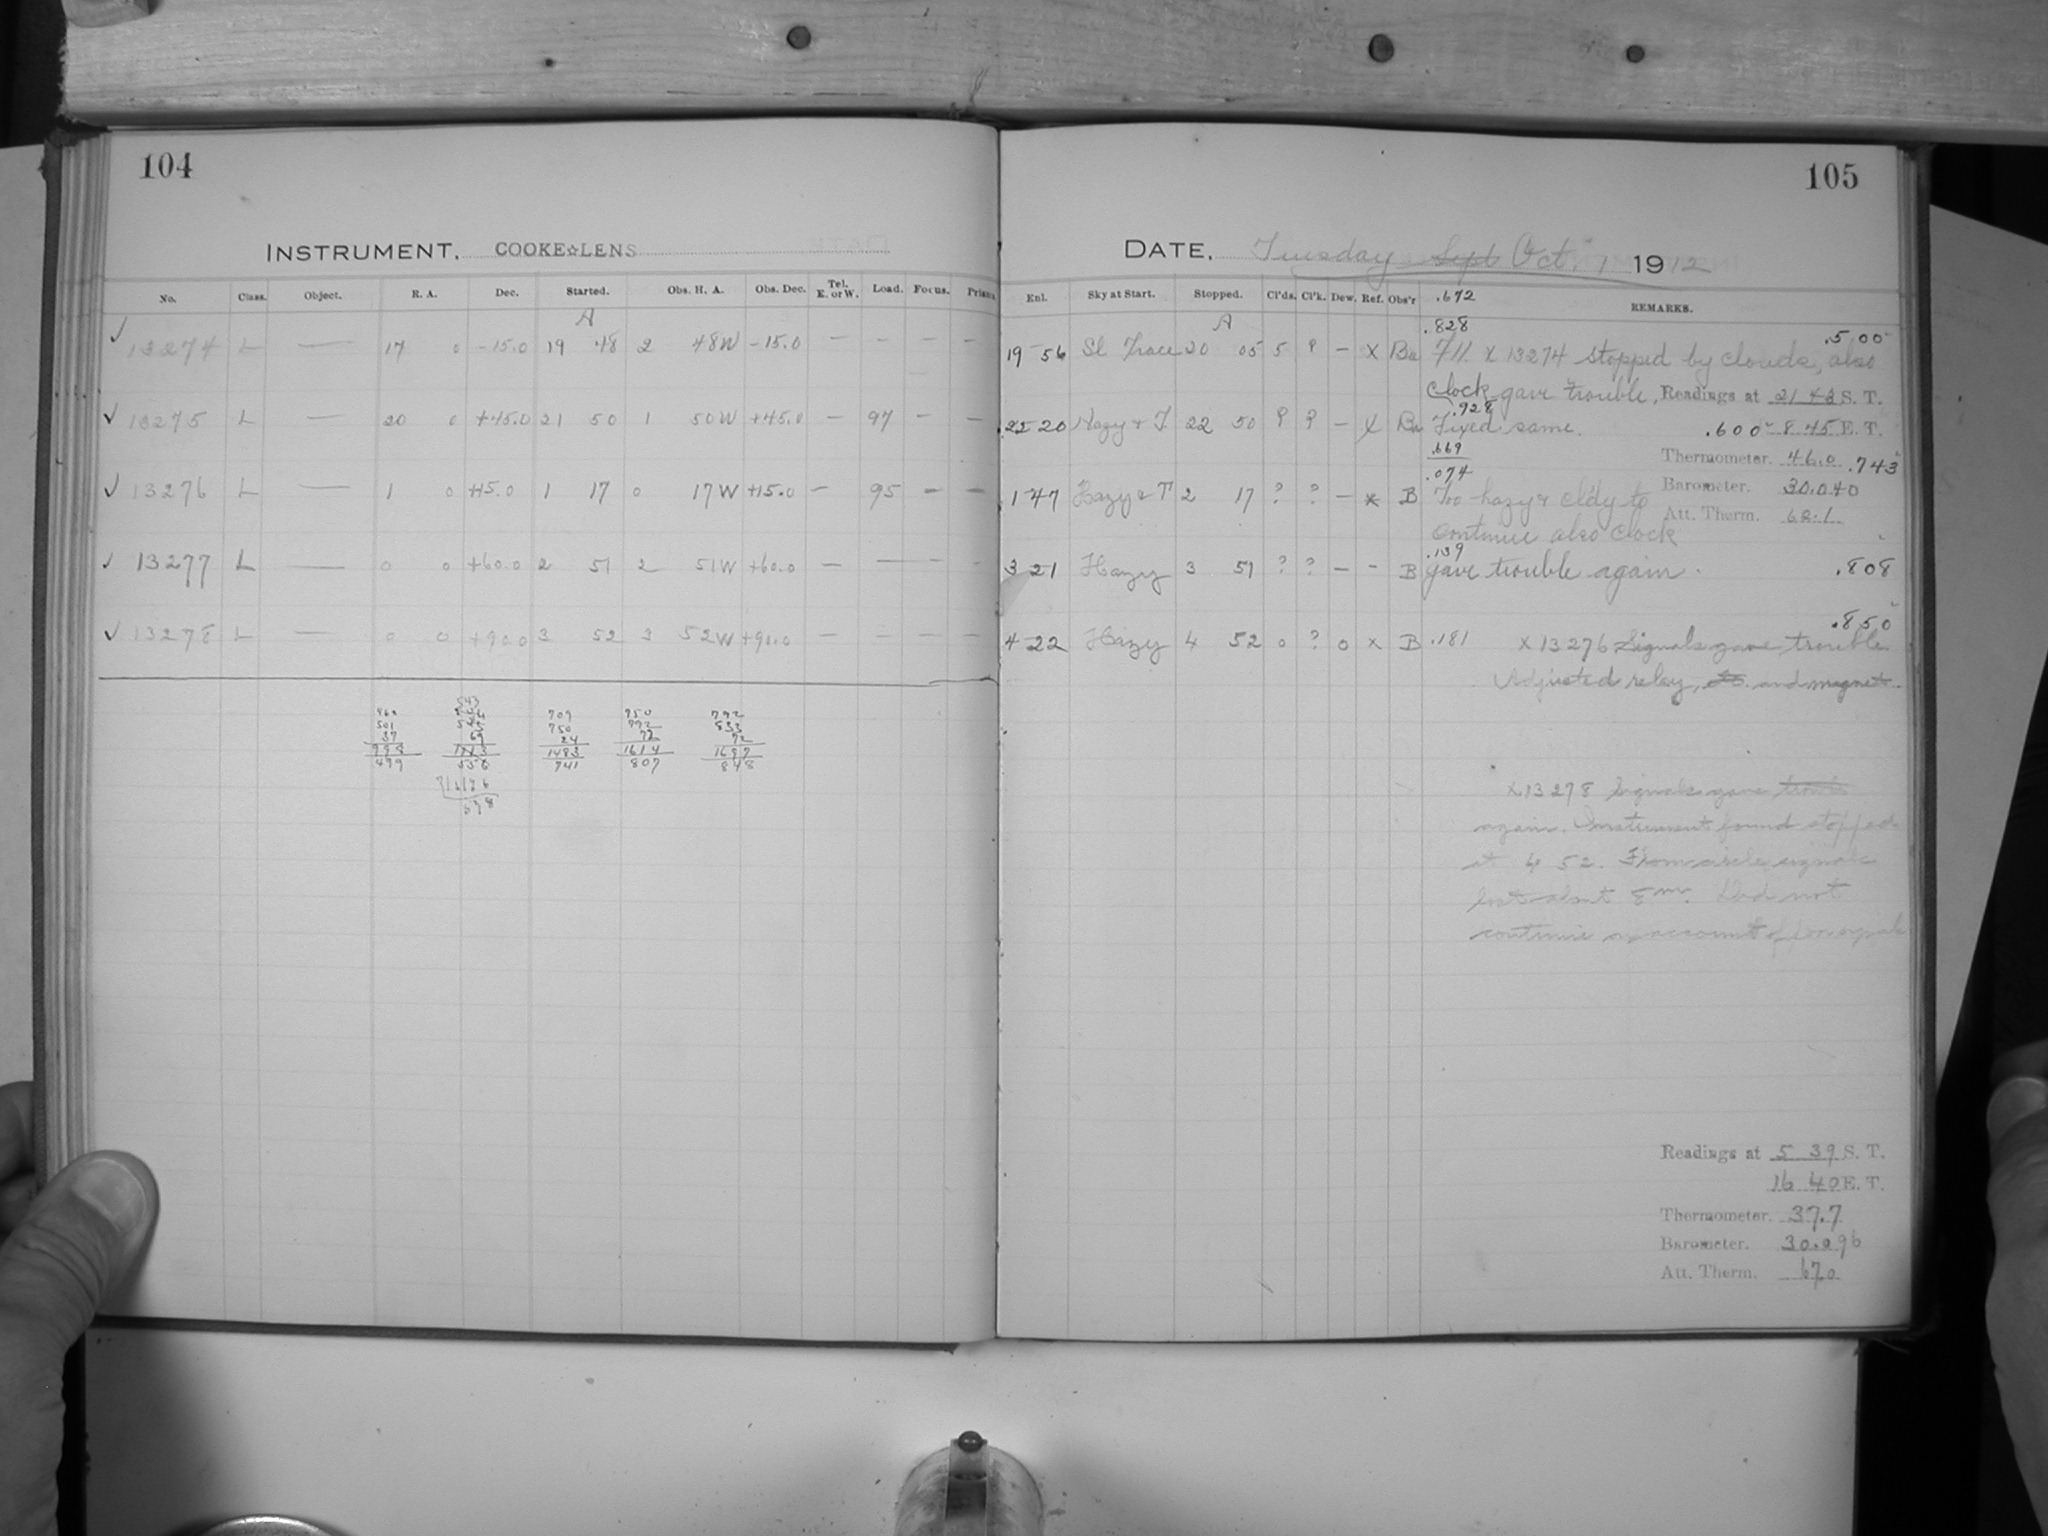 104
INSTRUMENT. COOKE☆LENS
No. Class. Object. R. A. Dec. Started. Obs. H. A. Obs. Dec. Tel. E. or W. Load. Focus. Prisms
A
✓ 13274 L — 17 0 -15.0 19 48 2 48W -15.0 — — — —
✓ 13275 L — 20 0 +45.0 21 50 1 50W +45.0 — 97 — —
✓ 13276 L — 1 0 +15.0 1 17 0 17W +15.0 — 95 — —
✓ 13277 L — 0 0 +60.0 2 51 2 51W +60.0 — — — —
✓ 13278 L — 0 0 +90.0 3 52 3 52W +90.0 — — — —
709 750 792
501 750 792 833
37 24 72 72
1483 1614 1697
499 741 807 848
105
DATE. Tuesday Sept Oct. 1 1912
Enl. Sky at Start. Stopped. Cl'ds. Cl'k. Dew. Ref. Obs'r .672 REMARKS.
A .828 .500
19 56 Sl Trace 20 05 5 ? — x Ba 711. x 13274 stopped by clouds, also
clock gave trouble. Readings at 21 43 S. T.
.928
22 20 Hazy & T 22 50 ? ? — x Ba Fixed same. .600 8 45 E. T.
.669
.074
Thermometer. 46.0 .743
1 47 Hazy & T 2 17 ? ? — x B Too hazy & cldy to Barometer. 30.040
Att. Therm. 68.1
continue also clock
.139
3 21 Hazy 3 51 ? ? — - B gave trouble again. .808
.850
4 22 Hazy 4 52 0 ? 0 x B .181 x 13276 Signals gave trouble
Adjusted relay, and magnet.
x 13278 Signals gave trouble
again. Instrument found stopped
at 4 52. From circle signals
lost about 8m. Did not
continue on account of poor signals
Readings at 5 39 S. T.
16 40 E. T.
Thermometer. 37.7
Barometer. 30.096
Att. Therm. 67.0